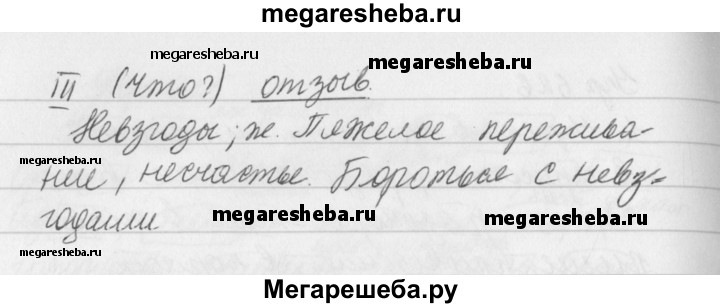 megaresheba.ru
megaresheba.ru
megaresheba.ru
III (что?) отзыв.
Невзгоды, ж. Тяжелое пережива-
megaresheba.ru
ние, несчастье. Бороться с невз-
годами
megaresheba.ru
megaresheba.ru
megaresheba.ru
Мегарешеба.ру